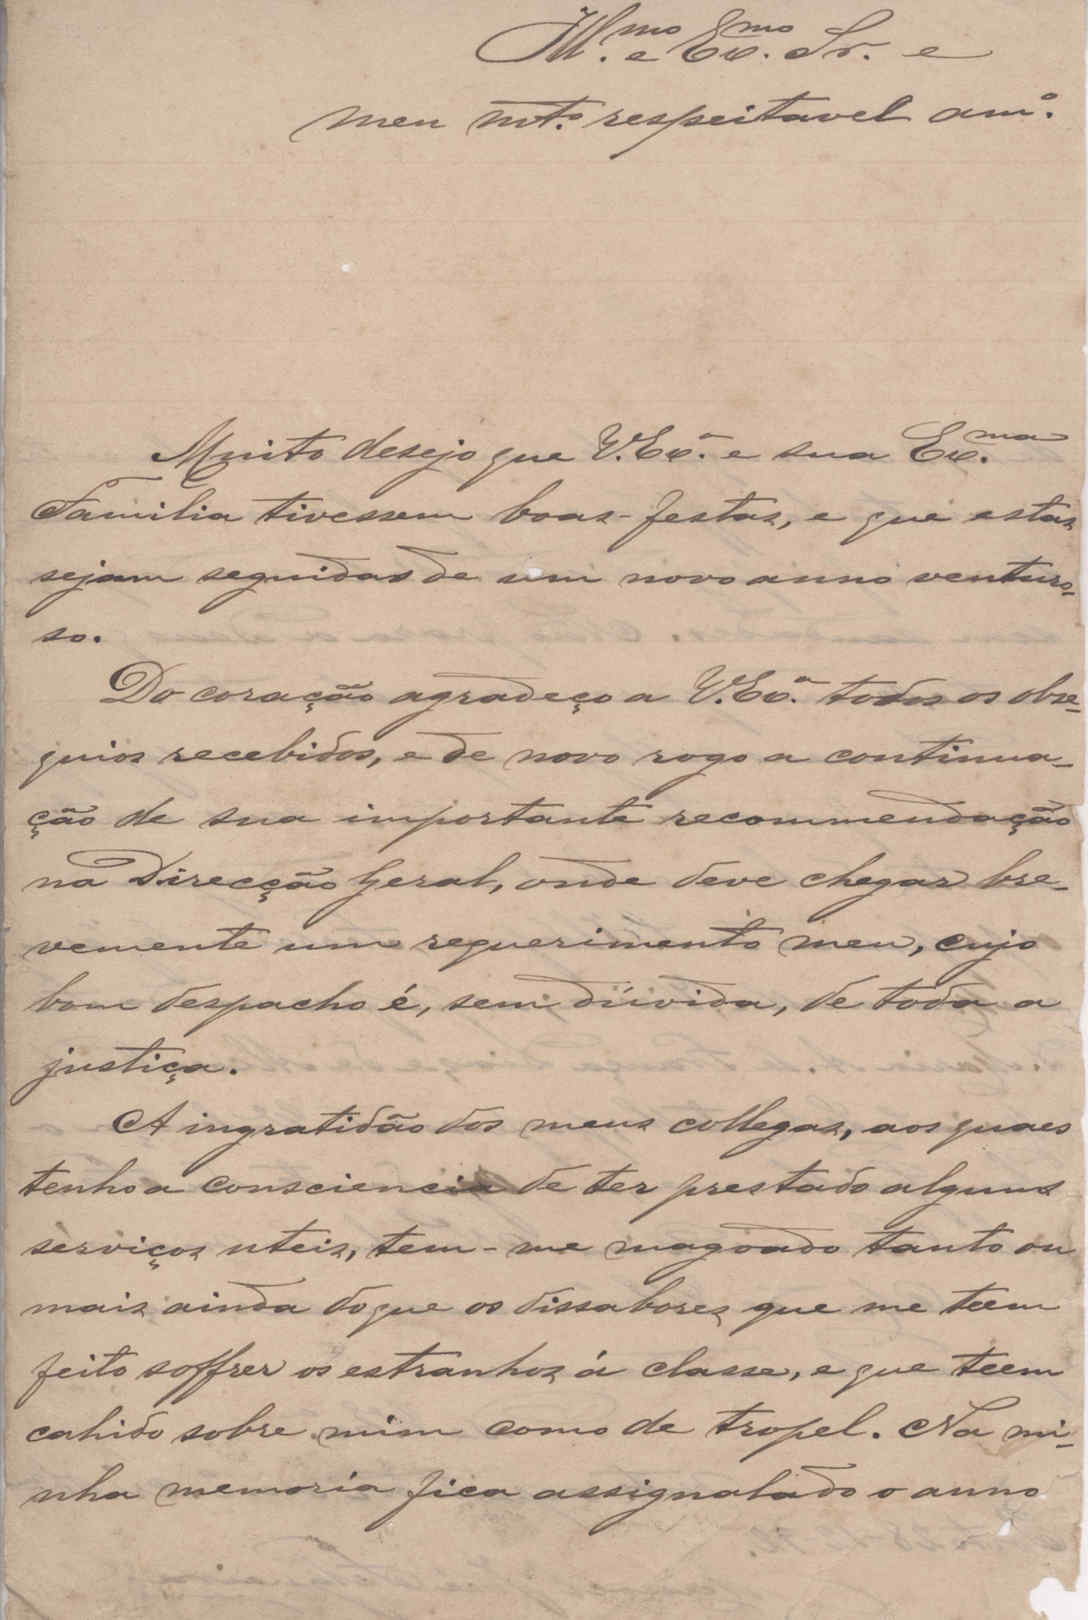 Ill.mo e Ex.mo Sr. e
meu mt.º respeitavel am.º
Muito desejo que V. Ex.ª e sua Ex.ma
Familia tivessem boas-festas, e que estas
sejam seguidas de um novo anno venturo-
so.
Do coração agradeço a V. Ex.ª todos os obse-
quios recebidos, e de novo rogo a continua-
ção de sua importante recommendação
na Direcção Geral, onde deve chegar bre-
vemente um requerimento meu, cujo
bom despacho é, sem dúvida, de toda a
justiça.
A ingratidão dos meus collegas, aos quaes
tenho a consciencia de ter prestado alguns
serviços uteis, tem-me magoado tanto ou
mais ainda do que os dissabores que me teem
feito soffrer os estranhos á classe, e que teem
cahido sobre mim como de tropel. Na mi-
nha memoria fica assignalado o anno